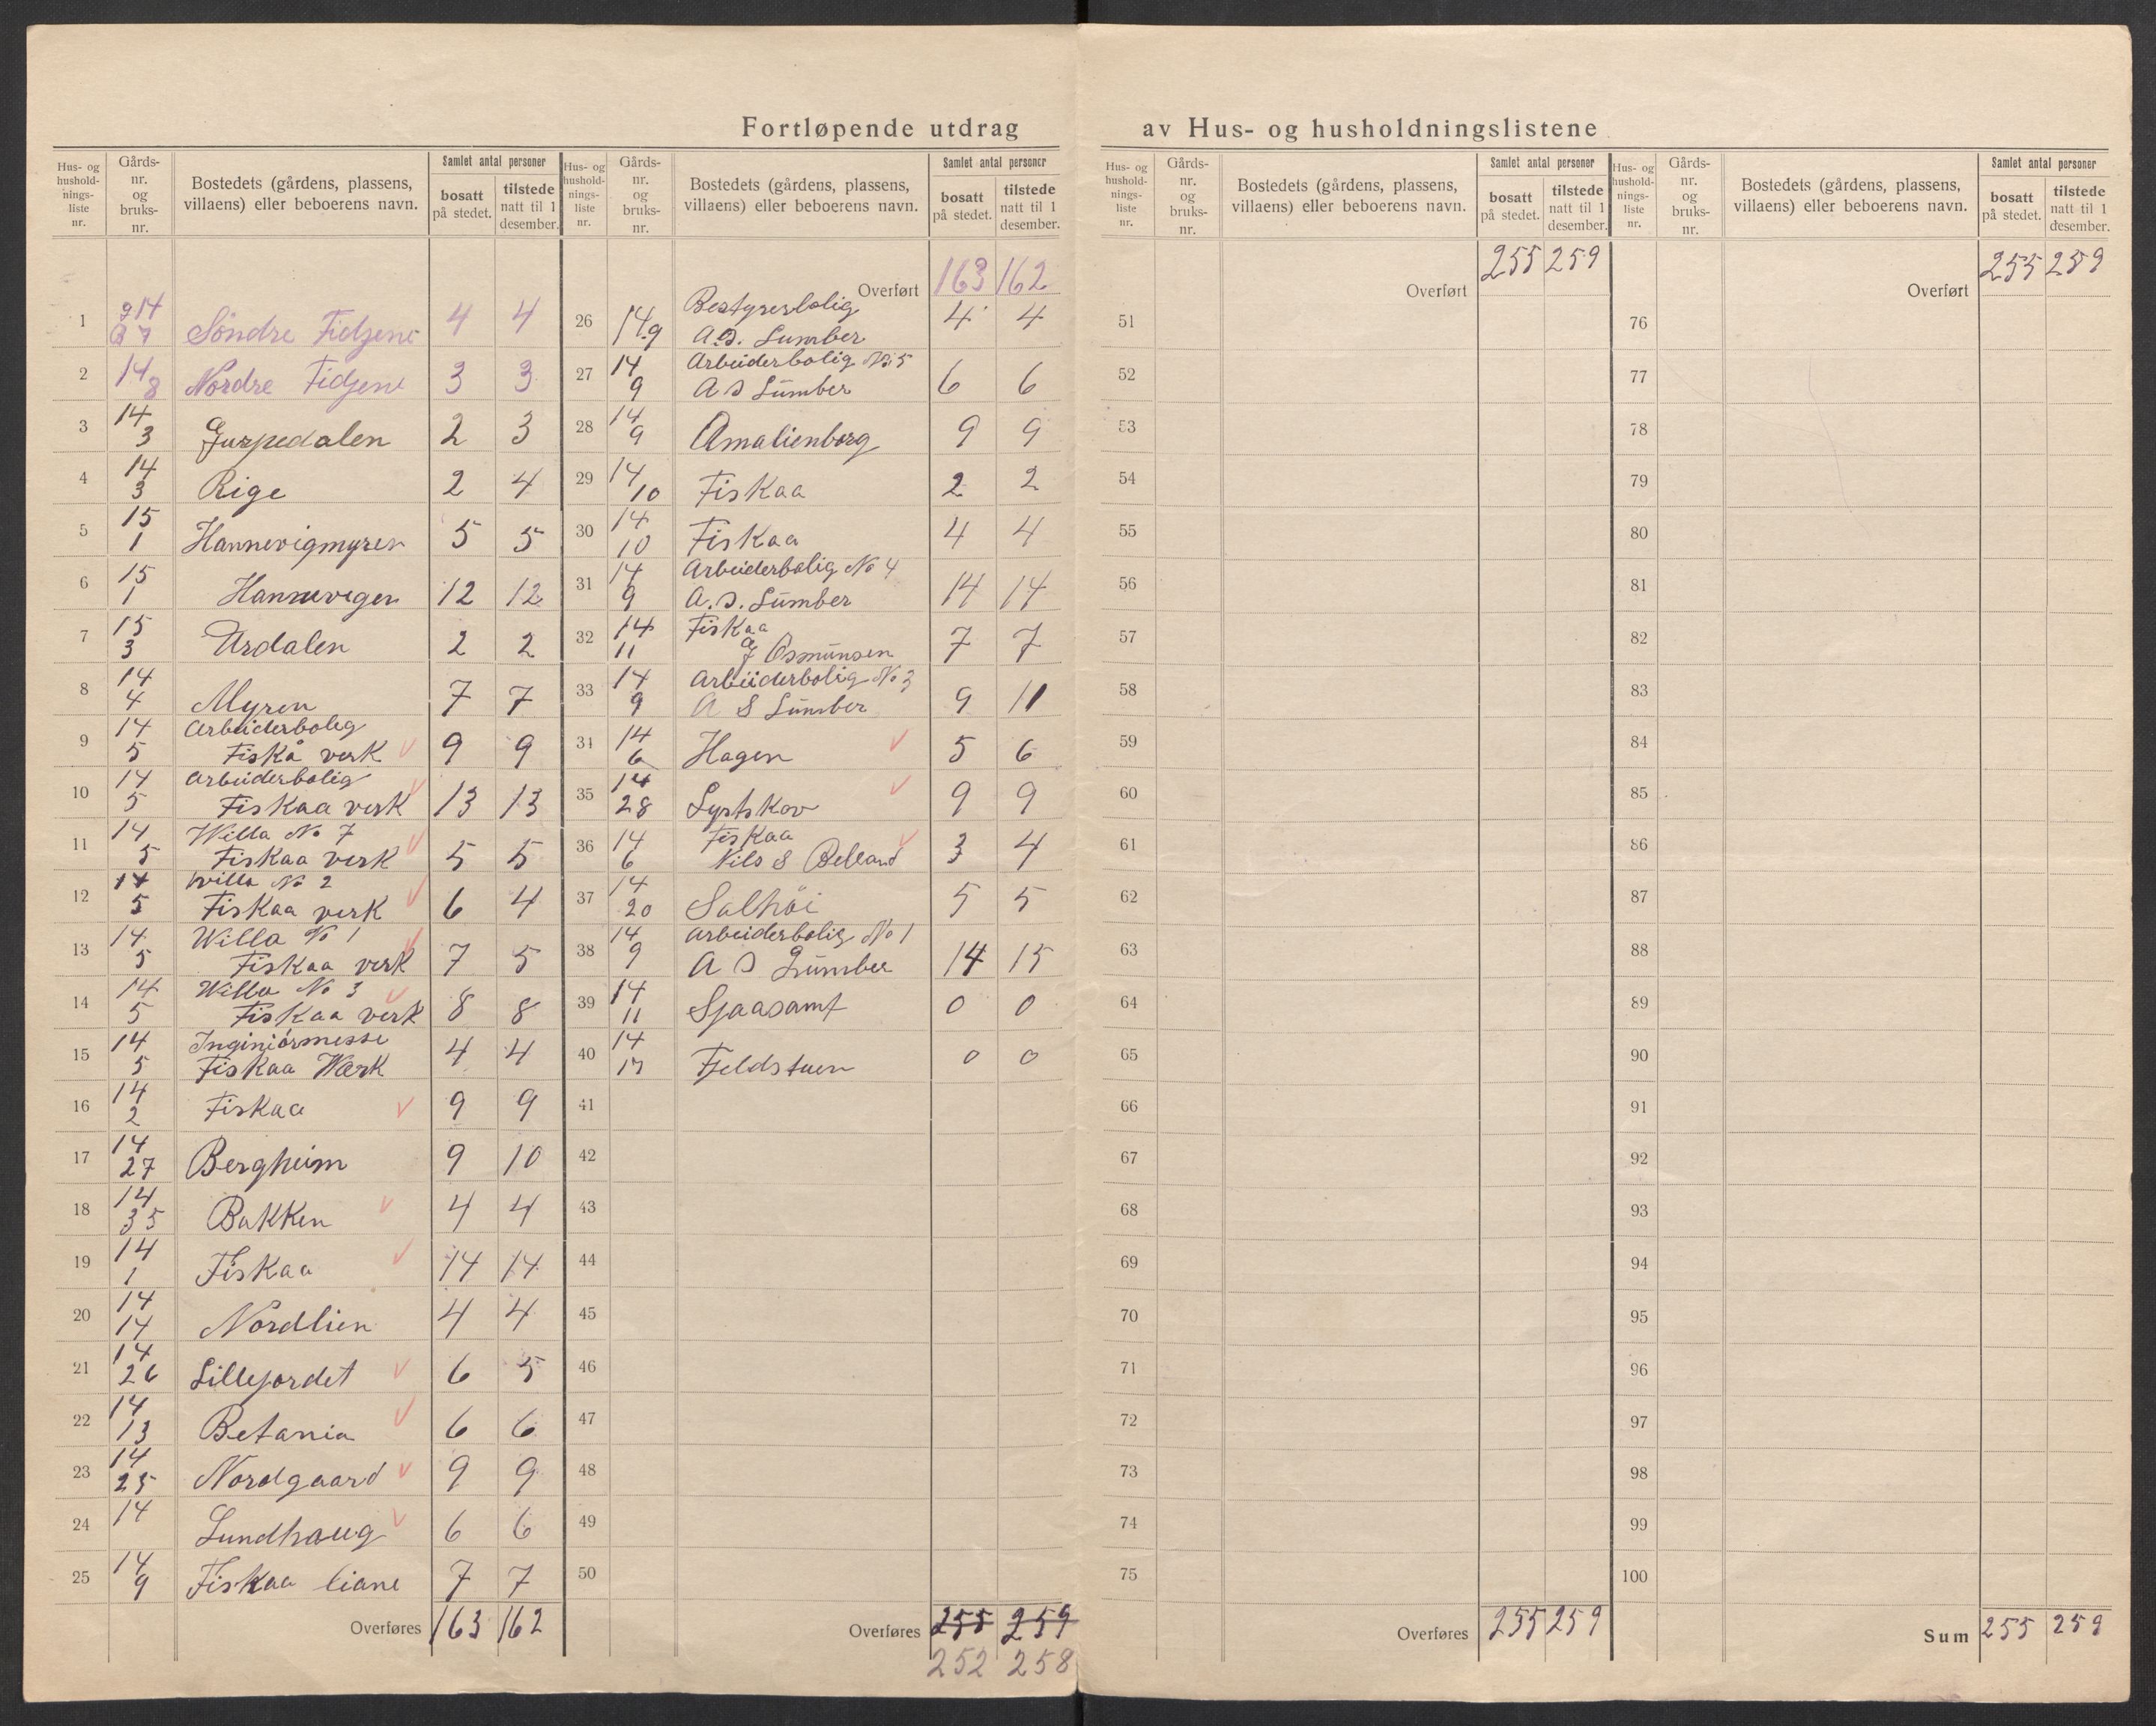 Fortløpende utdrag av Hus- og husholdningslistene
Hus- og hushold-nings-liste nr. Gårds-nr. og bruks-nr. Bostedets (gårdens, plassens, villaens) eller beboerens navn. Samlet antal personer bosatt på stedet. tilstede natt til 1 desember.
Hus- og hushold-nings-liste nr. Gårds-nr. og bruks-nr. Bostedets (gårdens, plassens, villaens) eller beboerens navn. Samlet antal personer bosatt på stedet. tilstede natt til 1 desember.
1 g 14 B 7 Söndre Fidjene 4 4
2 14 8 Nordre Fidjene 3 3
3 14 3 Gurpedalen 2 3
4 14 3 Rige 2 4
5 15 1 Hannevigmyren 5 5
6 15 1 Hannevigen 12 12
7 15 3 Urdalen 2 2
8 14 4 Myren 7 7
9 14 5 Arbeiderbolig
Fiskå verk 9 9
10 14 5 Arbeiderbolig
Fiskaa verk 13 13
11 14 5 Willa No 7
Fiskaa verk 5 5
12 14 5 Willa No 2
Fiskaa verk 6 4
13 14 5 Willa No 1
Fiskaa verk 7 5
14 14 5 Willa No 3
Fiskaa verk 8 8
15 14 5 Inginiörmesse
Fiskaa Værk 4 4
16 14 2 Fiskaa 9 9
17 14 27 Bergheim 9 10
18 14 35 Bakken 4 4
19 14 1 Fiskaa 14 14
20 14 14 Nordlien 4 4
21 14 26 Lillejordet 6 5
22 14 13 Betania 6 6
23 14 25 Nordgaard 9 9
24 14 Lundhaug 6 6
25 14 9 Fiskaa liane 7 7
Overføres 163 162
Overført 163 162
26 14 9 Bestyrerbolig
A.S. Lumber 4 4
27 14 9 Arbeiderbolig No 5
A S Lumber 6 6
28 14 9 Amalienborg 9 9
29 14 10 Fiskaa 2 2
30 14 10 Fiskaa 4 4
31 14 9 Arbeiderbolig No 4
A.S. Lumber 14 14
32 14 11 Fiskaa
G Osmunsen 7 7
33 14 9 Arbeiderbolig No 3
A S Lumber 9 11
34 14 6 Hagen 5 6
35 14 28 Lystskov 9 9
36 14 6 Fiskaa
Nils S Belland 3 4
37 14 20 Solhöi 5 5
38 14 9 Arbeiderbolig No 1
A S Lumber 14 15
39 14 11 Sjaasamt 0 0
40 14 17 Fjeldstuen 0 0
41
42
43
44
45
46
47
48
49
50
Overføres 255 259
252 258
Hus- og hushold-nings-liste nr. Gårds-nr. og bruks-nr. Bostedets (gårdens, plassens, villaens) eller beboerens navn. Samlet antal personer bosatt på stedet. tilstede natt til 1 desember.
Overført 255 259
51
52
53
54
55
56
57
58
59
60
61
62
63
64
65
66
67
68
69
70
71
72
73
74
75
Overføres 255 259
Hus- og hushold-nings-liste nr. Gårds-nr. og bruks-nr. Bostedets (gårdens, plassens, villaens) eller beboerens navn. Samlet antal personer bosatt på stedet. tilstede natt til 1 desember.
Overført 255 259
76
77
78
79
80
81
82
83
84
85
86
87
88
89
90
91
92
93
94
95
96
97
98
99
100
Sum 255 259